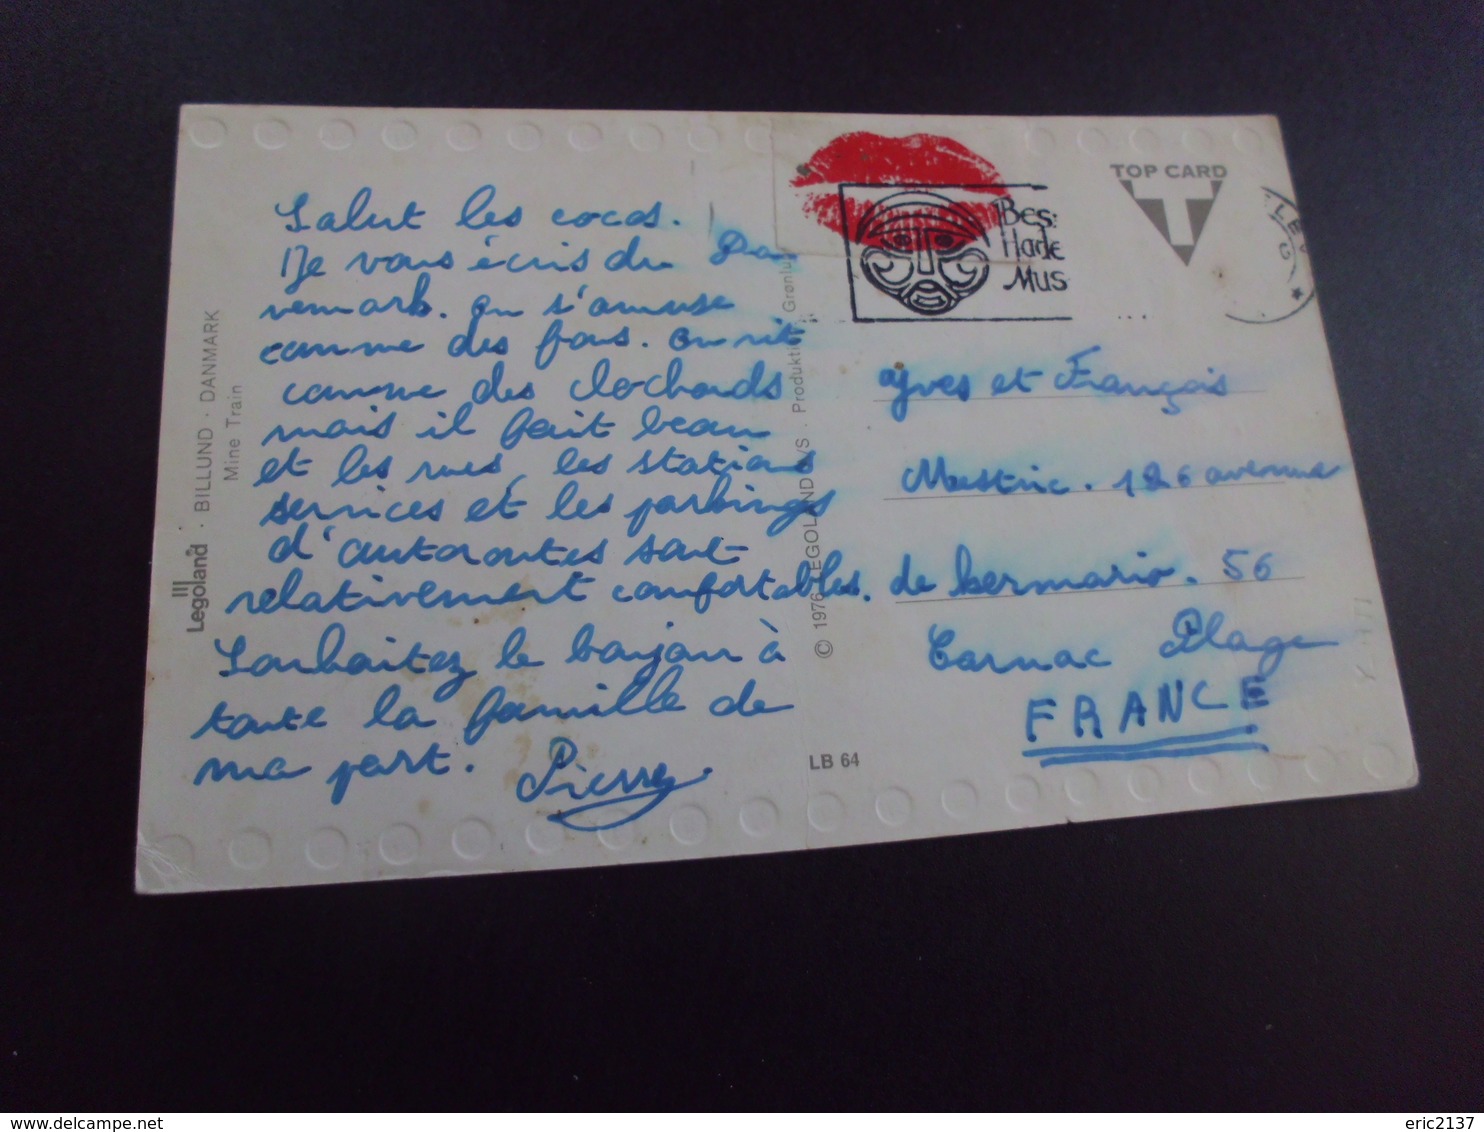 Salut les cocos.
Je vous écris du Da
nemark. on s'amuse
comme des fous. on vit
comme des clochards
mais il fait beau
et les rues, les stations
services et les parkings
d'autoroutes sont
relativement confortables.
Souhaitez le bonjour à
toute la famille de
ma part. Pierre
Legoland · BILLUND · DANMARK
Mine Train
© 1976 LEGOLAND A/S · Produktion: Grønlund
LB 64
TOP CARD
T
Bes:
Hade
Mus
Yves et François
126 avenue
de kermario. 56
Carnac Plage
FRANCE
eric2137 delcampe.net